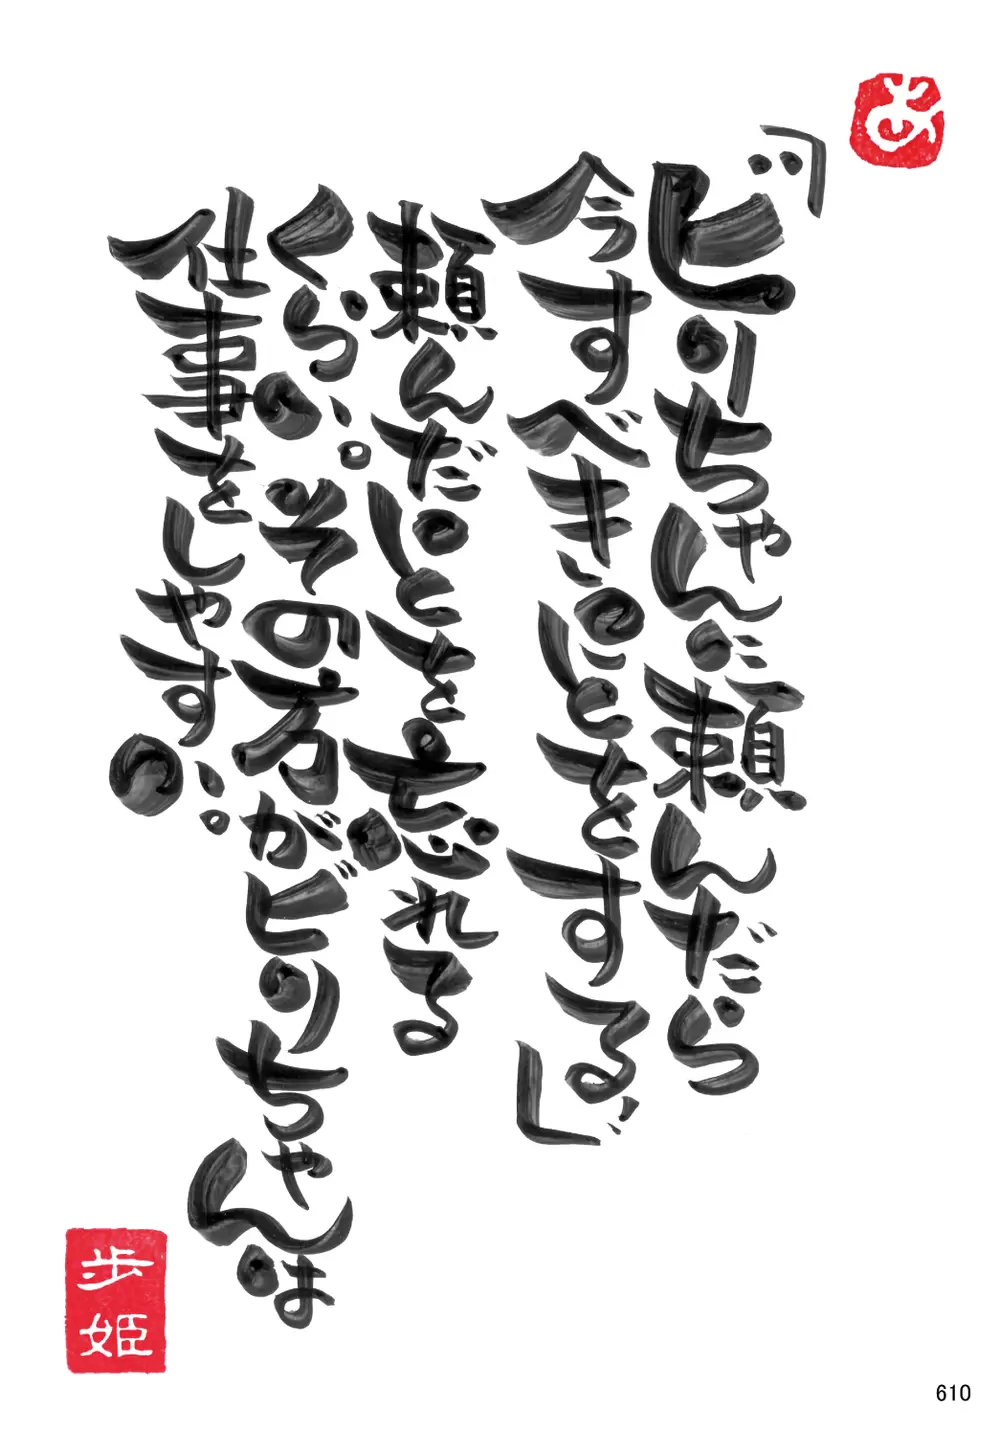 あ
「ビリちゃんに頼んだら
今すべきことをする」
頼んだことを忘れる
くらい。その方がビリちゃんは
仕事をしやすい。
歩姫
610